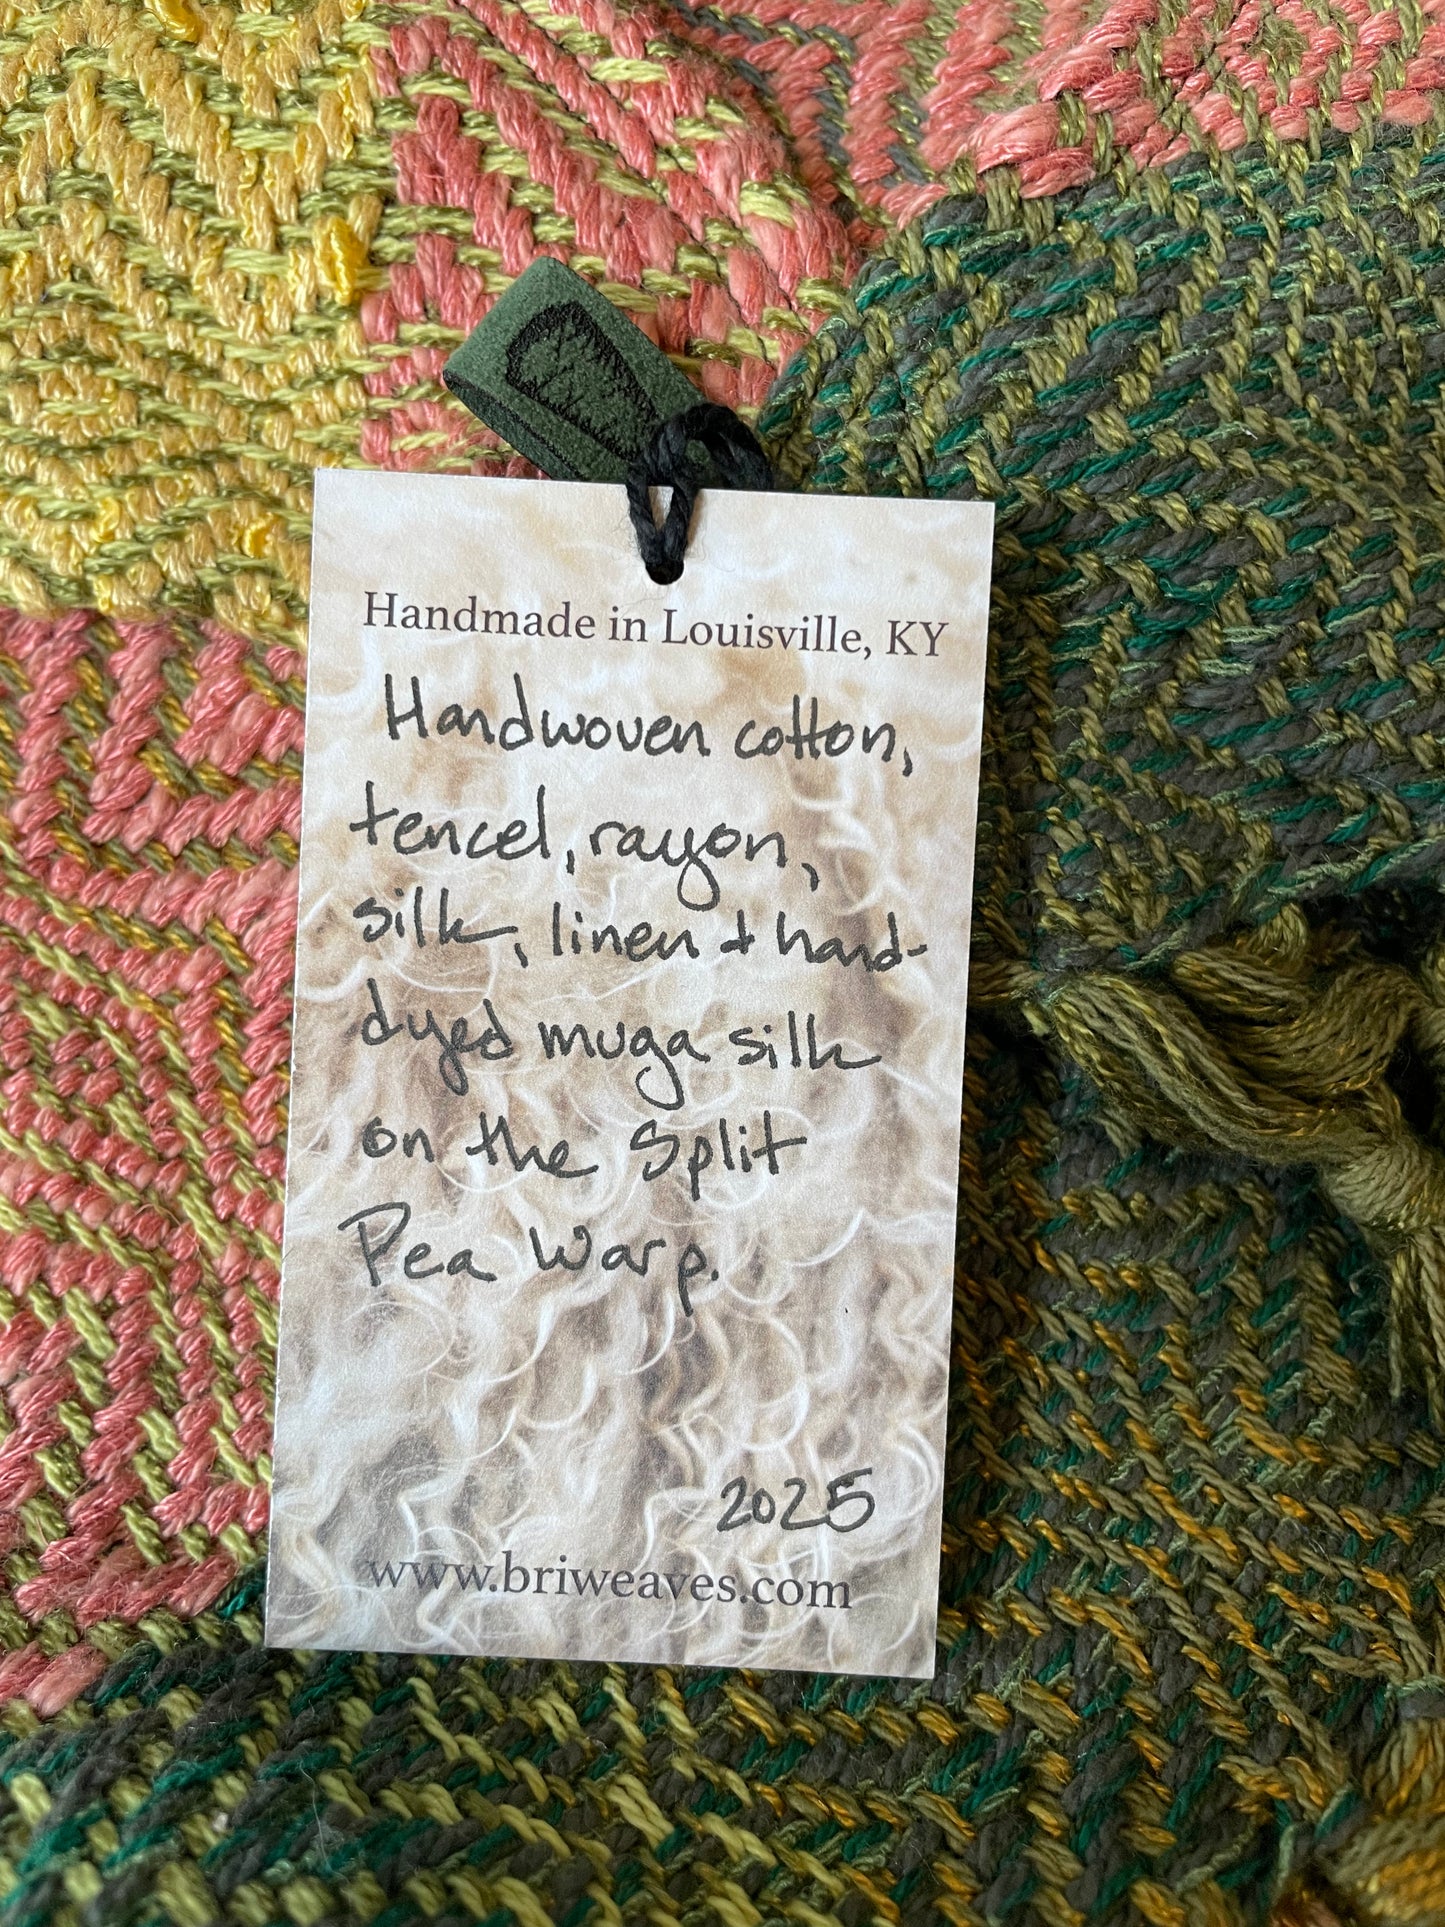 Handmade in Louisville, KY
Handwoven cotton,
tencel, rayon,
silk, linen + hand-
dyed muga silk
on the Split
Pea Warp.
2025
www.briweaves.com